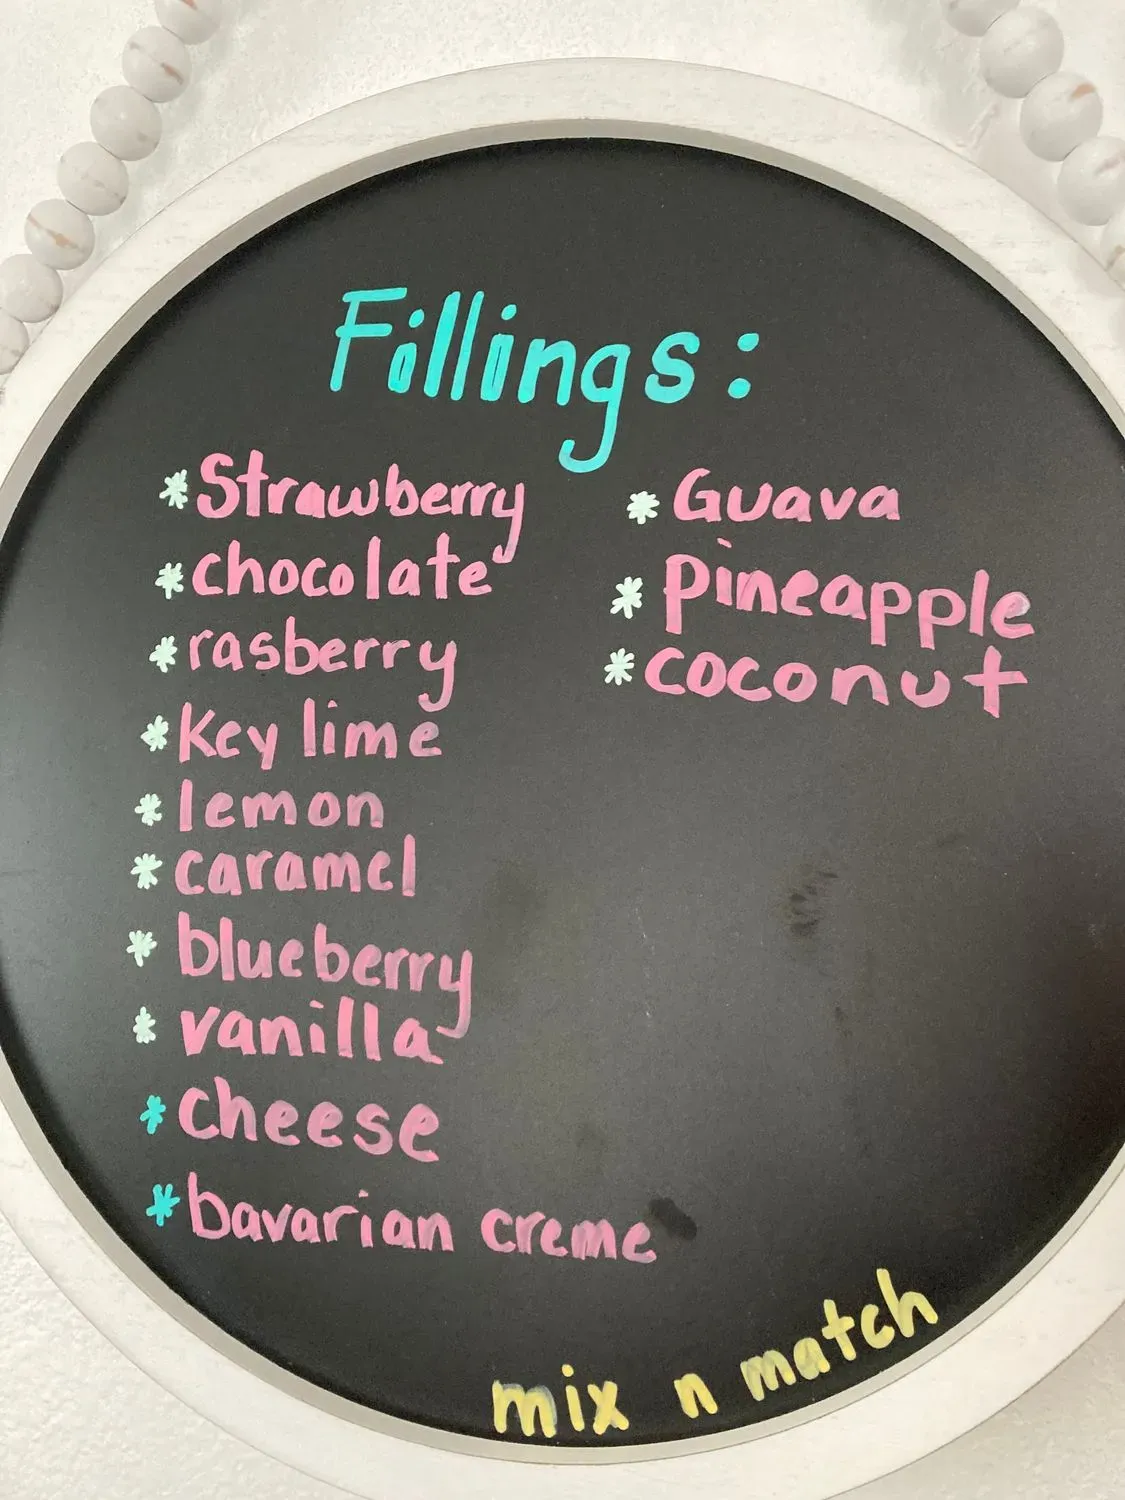 Fillings:
* Strawberry
* chocolate
* rasberry
* Key lime
* lemon
* caramel
* blueberry
* vanilla
* cheese
* bavarian creme
* Guava
* pineapple
* coconut
mix n match